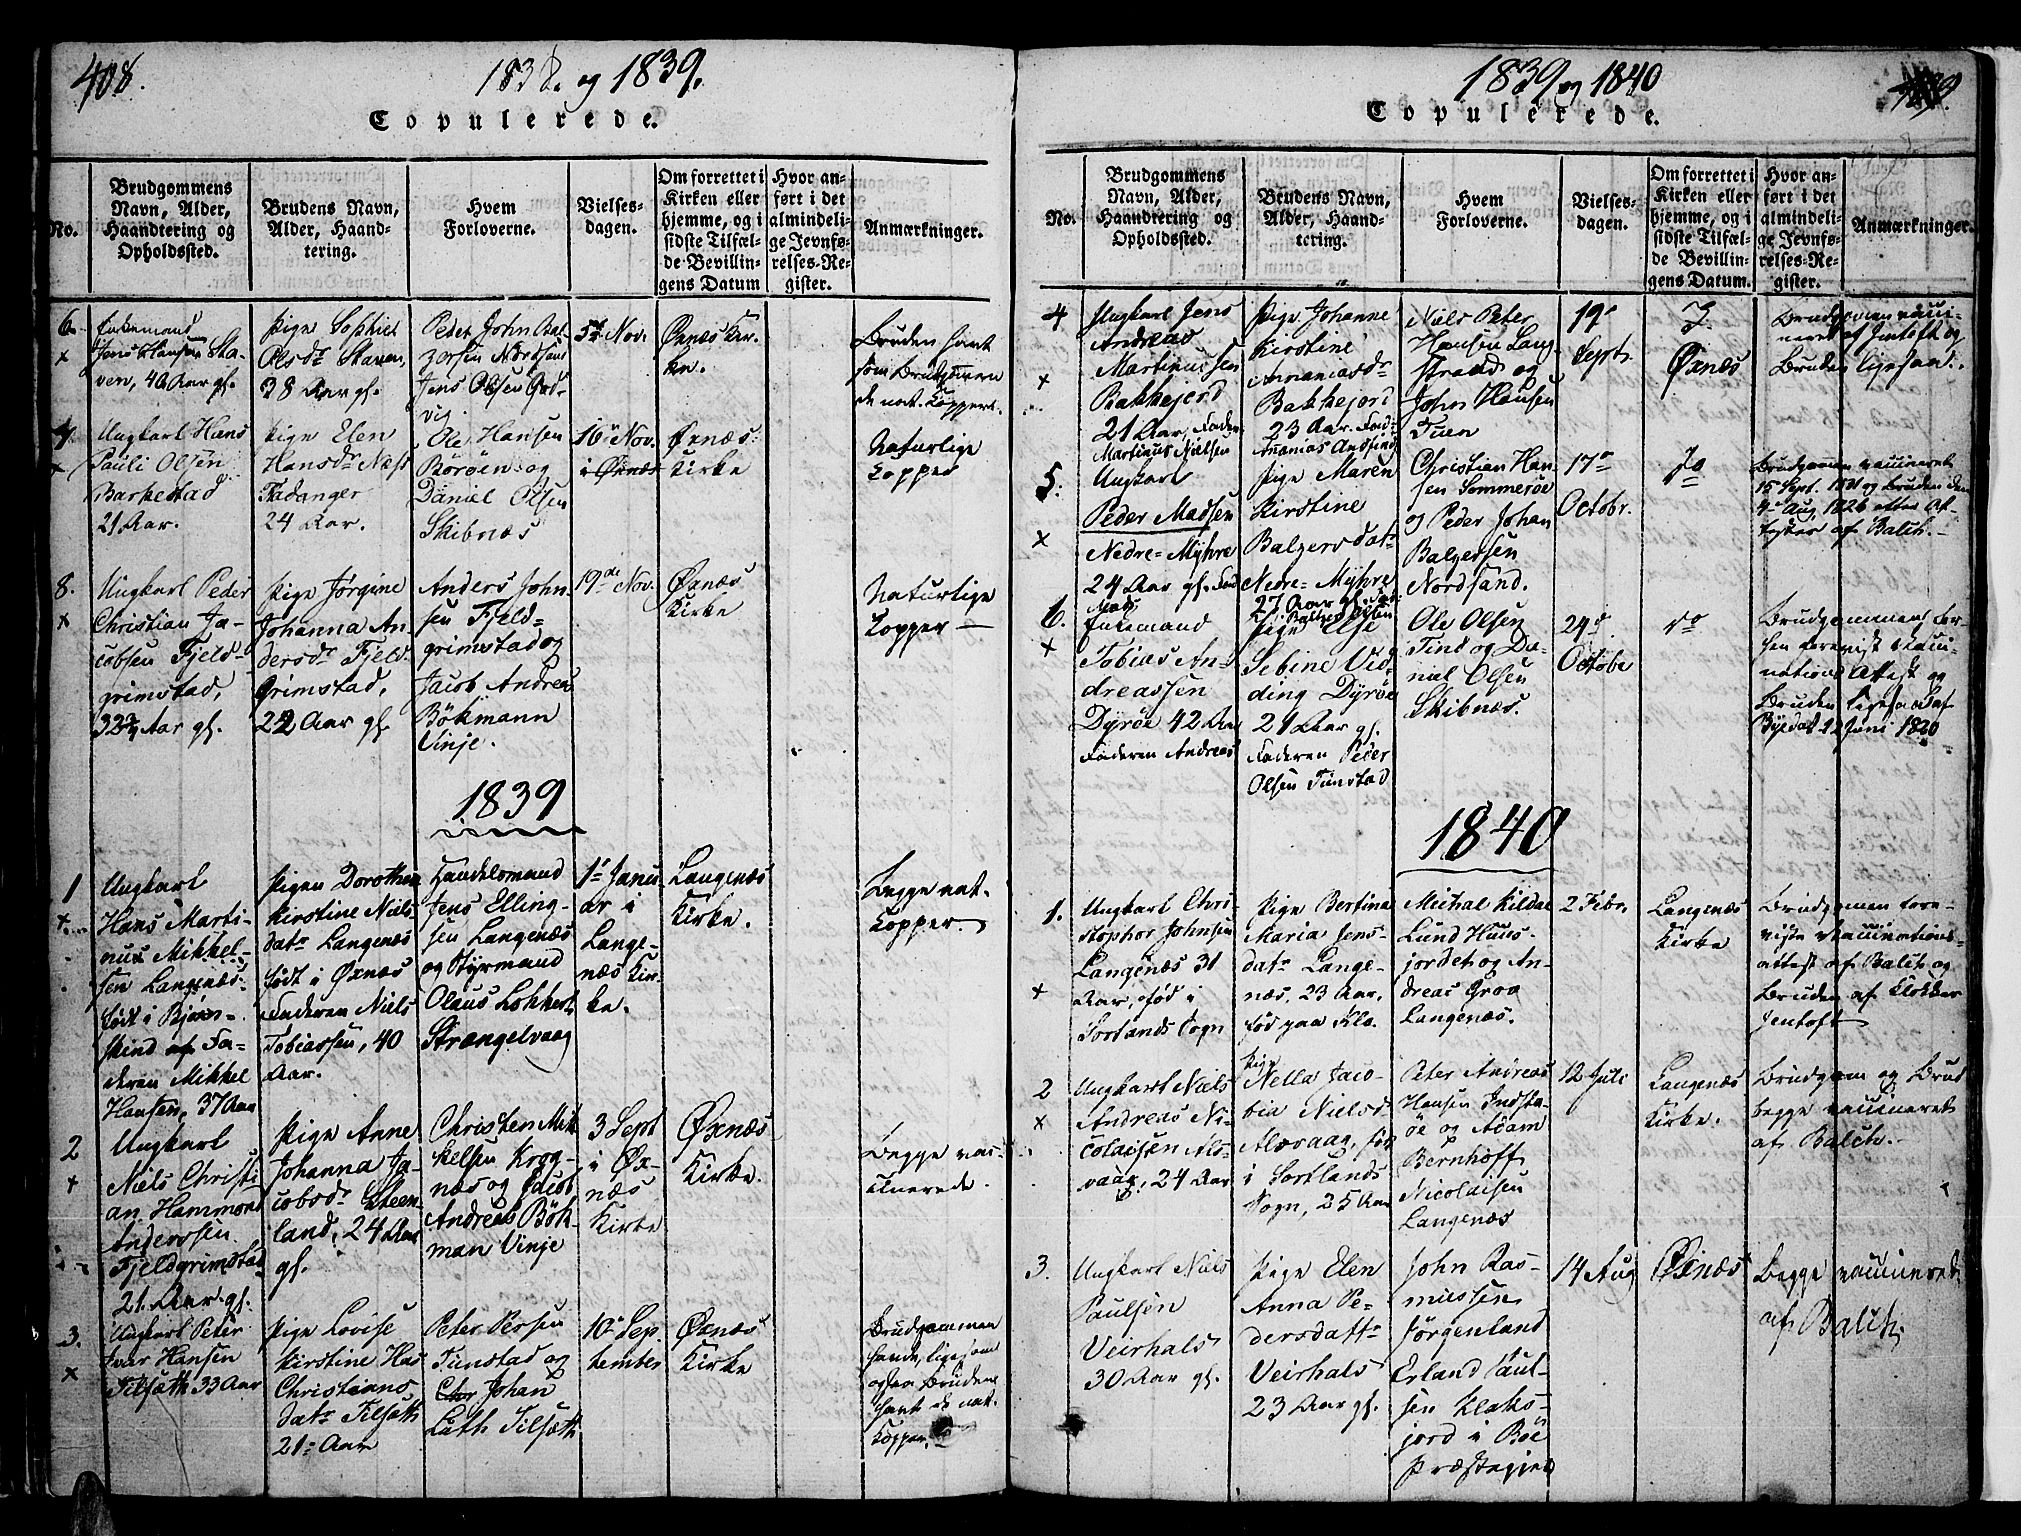 408.
1838. og 1839.
Copulerede.
No.
Brudgommens
Navn, Alder,
Haandtering og
Opholdssted.
Brudens Navn,
Alder, Haand-
tering.
Hvem
Forloverne.
Vielses-
dagen.
Om forrettet i
Kirken eller
hjemme, og i
sidste Tilfæl-
de Bevillin-
gens Datum
Hvor an-
ført i det
almindeli-
ge Jevnfø-
relses-Re-
gister.
Anmærkninger.
6.
Enkemand
Jens Hansen Sta-
ven, 40 Aar gl.
Pige Sophie
Olsdr Staven,
38 Aar gl.
Peder John Bal-
zersen Nordsand
Jens Olsen God-
vig
5te Nov.
Øxnæs Kir-
ke.
Bruden havt
som Brudgommen
de nat. Kopper.
7.
Ungkarl Hans
Pauli Olsen
Barkestad
21 Aar.
Pige Elen
Hansdr Næss
Fadanger
24 Aar.
Ole Hansen
Börøen og
Daniel Olsen
Skibnæs
16 Nov.
i Øxnæs
Øxnæs
Kirke
Naturlige
Kopper
8.
Ungkarl Peder
Christian Ja-
cobsen Fjeld-
grimstad,
32 3/4 Aar gl.
Pige Jørgine
Johanna An-
dersdr Fjeld-
grimstad,
22 Aar gl.
Anders John-
sen Fjeld-
grimstad og
Jacob Andreas
Bökmann
Vinje.
19de Nov.
Øxnæs
Kirke
Naturlige
Kopper
1839
1
Ungkarl
Hans Marti-
nus Mikkel-
sen Langenæs
født i Bjørn-
skind af Fa-
deren Mikkel
Hansen, 37 Aar
Pigen Dorothea
Kirstine Niels
datr Langenæs
født i Øxnæs
Faderen Niels
Tobiassen, 40
Aar.
Handelsmand
Jens Elling-
sen Langenæs
og Styrmand
Olaus Lokkert
Strengelvaag
1e Janu-
ar i
Lange-
næs Kir-
ke.
Langenæs
Kirke.
Begge nat.
Kopper.
2
Ungkarl
Niels Christi
an Hammond
Anderssen
Fjeldgrimstad
21 Aar gl.
Pige Anne
Johanna Ja-
cobsdr Steen-
land, 24 Aar
gl.
Christen Mik
kelsen Krog-
næs og Jacob
Andreas Bök-
man Vinje
3 Sept
i Øx-
næs
Kirke
Øxnæs
Kirke.
Begge vac-
cinerede.
3.
Ungkarl Peter
Ivar Hansen
Tilsæth 33 Aar
Pige Lovise
Kirstine Has
Christians
datr Tilsæth
21 Aar
Peter Persen
Tunstad og
Johan
Lath Tilsæth
10 Sep-
tember
Øxnæs
Kirke
Brudgommen
havde, ligesom
ogsaa Bruden
havt de nat.
Kopper.
1839 og 1840
Copulerede.
No.
Brudgommens
Navn, Alder,
Haandtering og
Opholdssted.
Brudens Navn,
Alder, Haand-
tering.
Hvem
Forloverne.
Vielses-
dagen.
Om forrettet i
Kirken eller
hjemme, og i
sidste Tilfæl-
de Bevillin-
gens Datum.
Hvor an-
ført i det
almindeli-
ge Jevnfø-
relses-Re-
gister.
Anmærkninger.
4
Ungkarl Jens
Andreas
Martinussen
Bakkejord
21 Aar, Fader
Martinus Nielsen
Pige Johanne
Kirstine
Annaniasdr
Bakkejord
23 Aar. Fad.
Ananias
Niels Peter
Hansen Lang-
strand og
John Hansen
Tuen
19
Sept.
I
Øxnæs
Brudgommen vacci-
neret af Jentoft og
Bruden ligesaa.
5.
Ungkarl
Peder Madsen
Nedre-Myhre
24 Aar gl. Fad
Mads
Pige Maren
Kirstine
Balzersdatr
Nedre-Myhre
27 Aar gl.
Christian Han
sen Sommerøe
og Peder Johan
Balzersen
Nordsand.
17
Octobr.
Do
Brudgommen vaccineret
15 Sept. 1821 og Bruden den
4 Aug. 1826 efter At-
tester af Balch.
6.
Enkemand
Tobias An-
dreassen
Dyrøe 42 Aar
Faderen Andreas
Pige Else
Sebine Vid-
ding Dyrøe
21 Aar gl.
Faderen Peder
Olsen Tunstad
Ole Olsen
Tind og Da-
niel Olsen
Skibnæs.
24
Octobr
Do
Brudgommens For-
hen forevist Vacci-
nations Attest og
Bruden ligesaa af
12 Juni 1820
1840
1.
Ungkarl Chri-
stopher Johnsen
Langenæs 31
Aar, fød i
Sortlands Sogn
Pige Bertina
Maria Jens-
datr Lange-
næs, 23 Aar.
fød paa Klo.
Michal Kildal
Lund Huus-
jordet og An-
dreas Groa
Langenæs.
2 Febr.
Langenæs
Kirke
Brudgommen fore-
viste Vaccinations-
attest af Balch og
Bruden af Klokker
Jentoft
2
Ungkarl Niels
Andreas Ni-
colaisen Als-
vaag, 24 Aar
Pige
Nella Jaco-
bia Nielsd
Alsvaag, fød
i Sortlands
Sogn, 25 Aar
Peter Andreas
Hansen Indsta-
öe og Adam
Bernhoff
Nicolaisen
Langenæs
12 Juli
Langenæs
Kirke.
Brudgom og Brud
begge vaccineret
af Balch.
3.
Ungkarl Niels
Paulsen
Veirhals
30 Aar gl.
Pige Elen
Anna Pe-
dersdattr
Veirhals
23 Aar gl.
John Ras-
mussen
Jørgenland
Erland Paul-
sen Klaks-
jord i Böe
Præstegjeld
14 Aug
Øxnæs
Begge vaccinerede
af Balch.